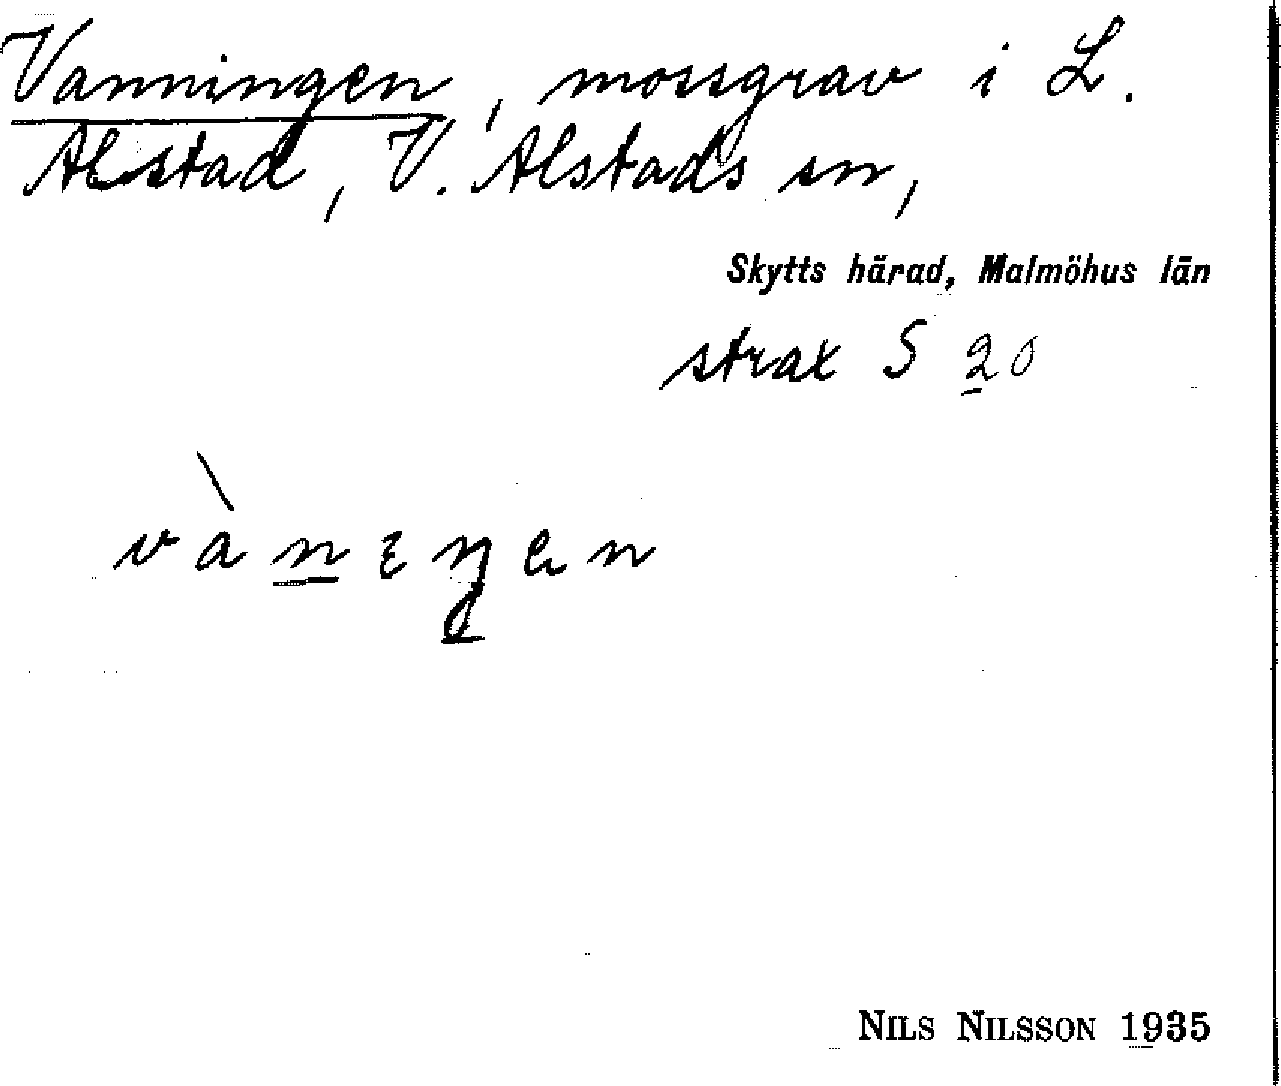 Vanningen, mossgrav i L.
Alstad, V. Alstads sn,
Skytts härad, Malmöhus län
strax S 20
vànıŋen
NILS NILSSON 1935